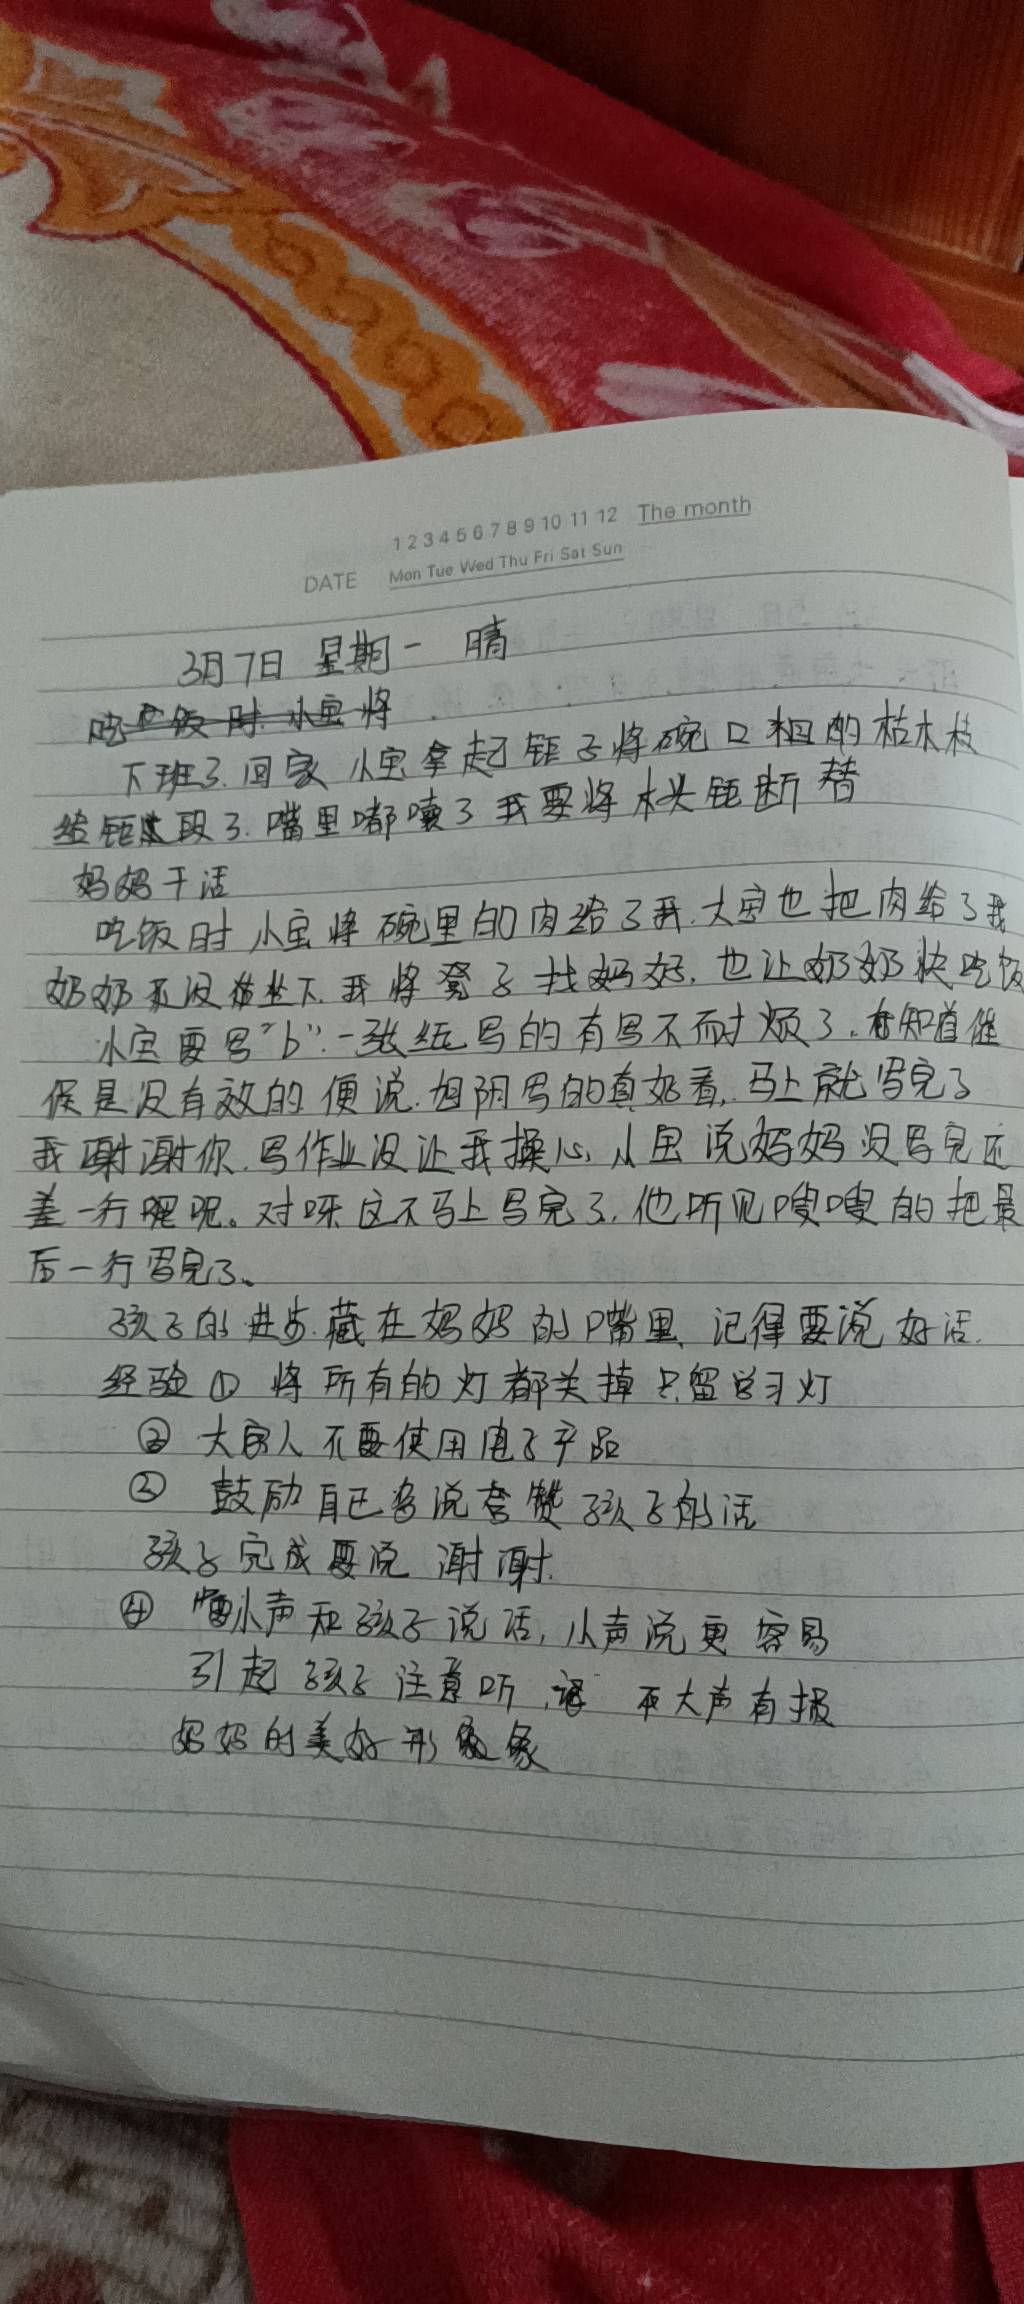 1 2 3 4 5 6 7 8 9 10 11 12 The month
DATE Mon Tue Wed Thu Fri Sat Sun
3月7日 星期一 晴
吃饭时小宝将
下班了.回家 小宝拿起钜子将碗口粗的枯木枝
给钜段了.嘴里嘟囔了我要将木头钜断 替
妈妈干活
吃饭时小宝将碗里的肉给了我.大宝也把肉给了我
奶奶还没坐下.我将凳子找妈好,也让奶奶快吃饭
小宝要写"b".一张纸写的有写不耐烦了.知道催
促是没有效的.便说.旭阴写的真好看,马上就写完了
我谢谢你.写作业没让我操心,小宝说妈妈没写完还
差一行呢。对呀这不马上写完了.他听见嗖嗖的把最
后一行写完了。
孩子的进步.藏在妈妈的嘴里、记得要说好话.
经验① 将所有的灯都关掉只留学习灯
② 大家人不要使用电子产品
③ 鼓励自己多说夸赞孩子的话
孩子完成要说 谢谢.
④ 小声和孩子说话,小声说更容易
引起孩子注意听, 不大声有损
妈妈的美好形象